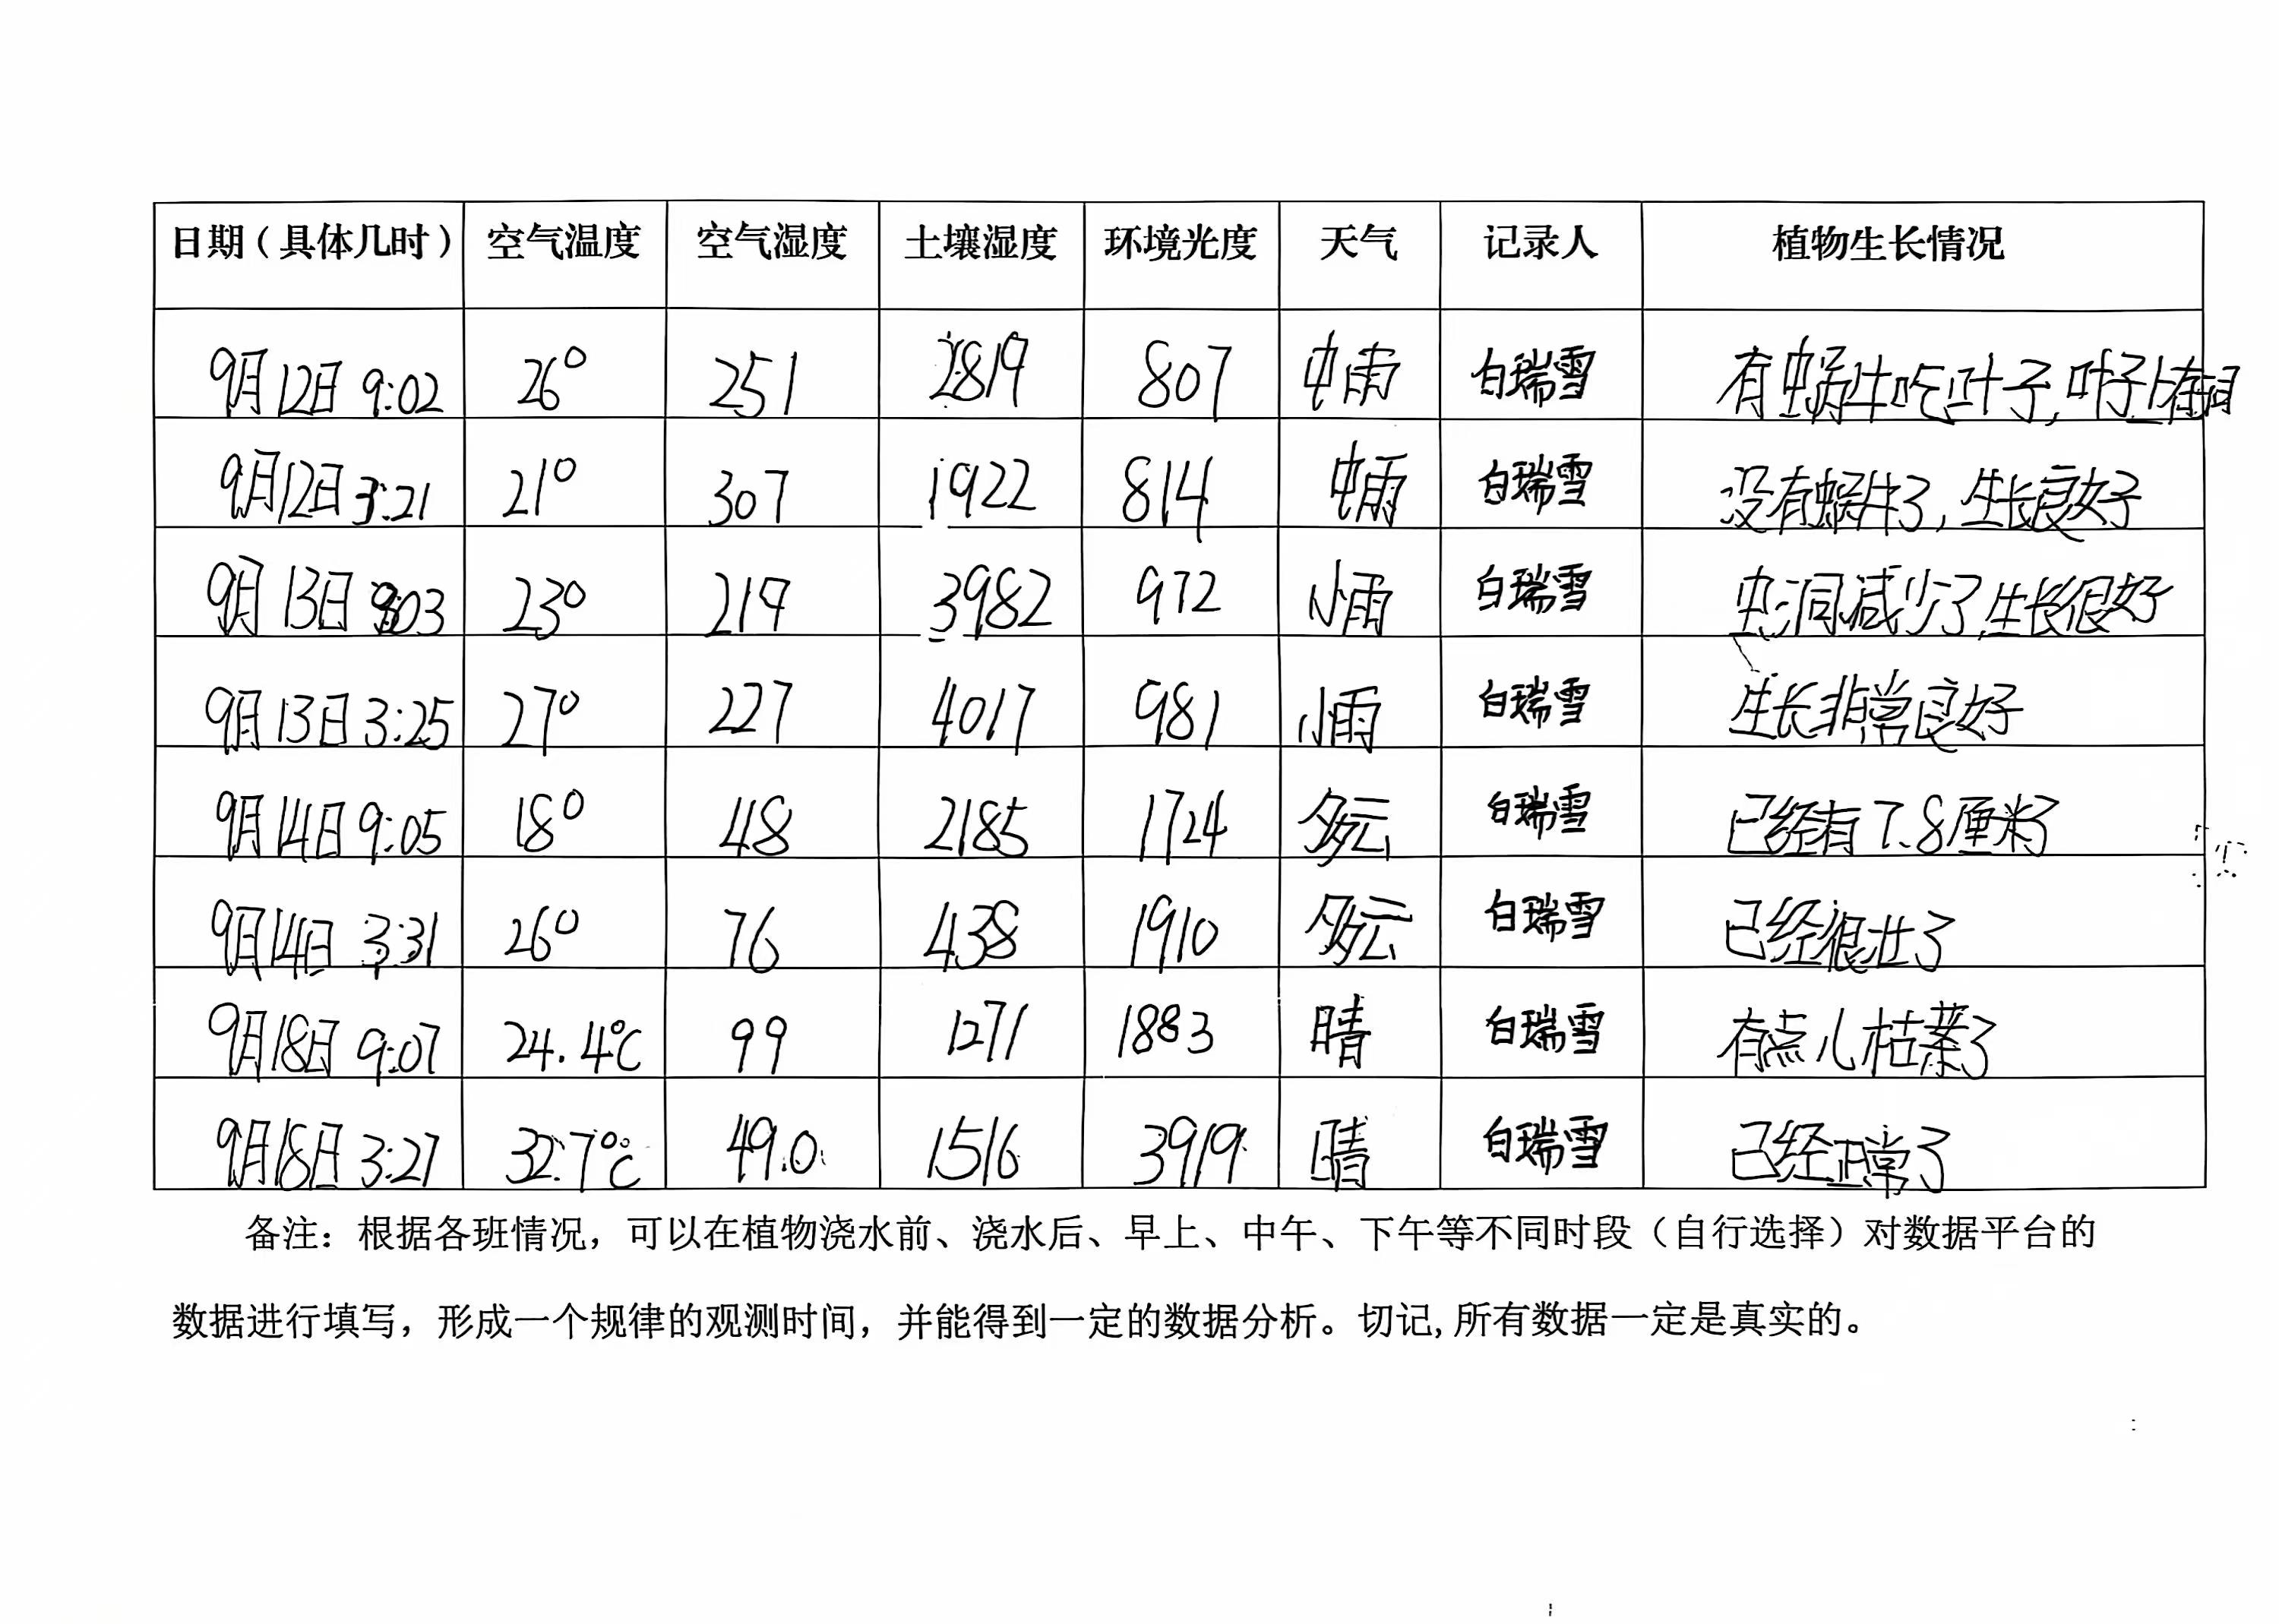 日期（具体几时） 空气温度 空气湿度 土壤湿度 环境光度 天气 记录人 植物生长情况
9月12日 9:02 26° 251 2819 807 中雨 白瑞雪 有蜗牛吃叶子,叶子上有洞
9月12日 3:21 21° 307 1922 814 中雨 白瑞雪 没有蜗牛了,生长良好
9月13日 9:03 23° 219 3982 972 小雨 白瑞雪 虫洞减少了,生长很好
9月13日 3:25 27° 227 4017 981 小雨 白瑞雪 生长非常良好
9月14日 9:05 18° 48 2185 1724 多云 白瑞雪 已经有7.8厘米了
9月14日 3:31 26° 76 438 1910 多云 白瑞雪 已经很壮了
9月18日 9:07 24.4℃ 99 1271 1883 晴 白瑞雪 有点儿枯萎了
9月18日 3:27 32.7℃ 49.0 1516 3919 晴 白瑞雪 已经正常了
备注：根据各班情况，可以在植物浇水前、浇水后、早上、中午、下午等不同时段（自行选择）对数据平台的
数据进行填写，形成一个规律的观测时间，并能得到一定的数据分析。切记,所有数据一定是真实的。